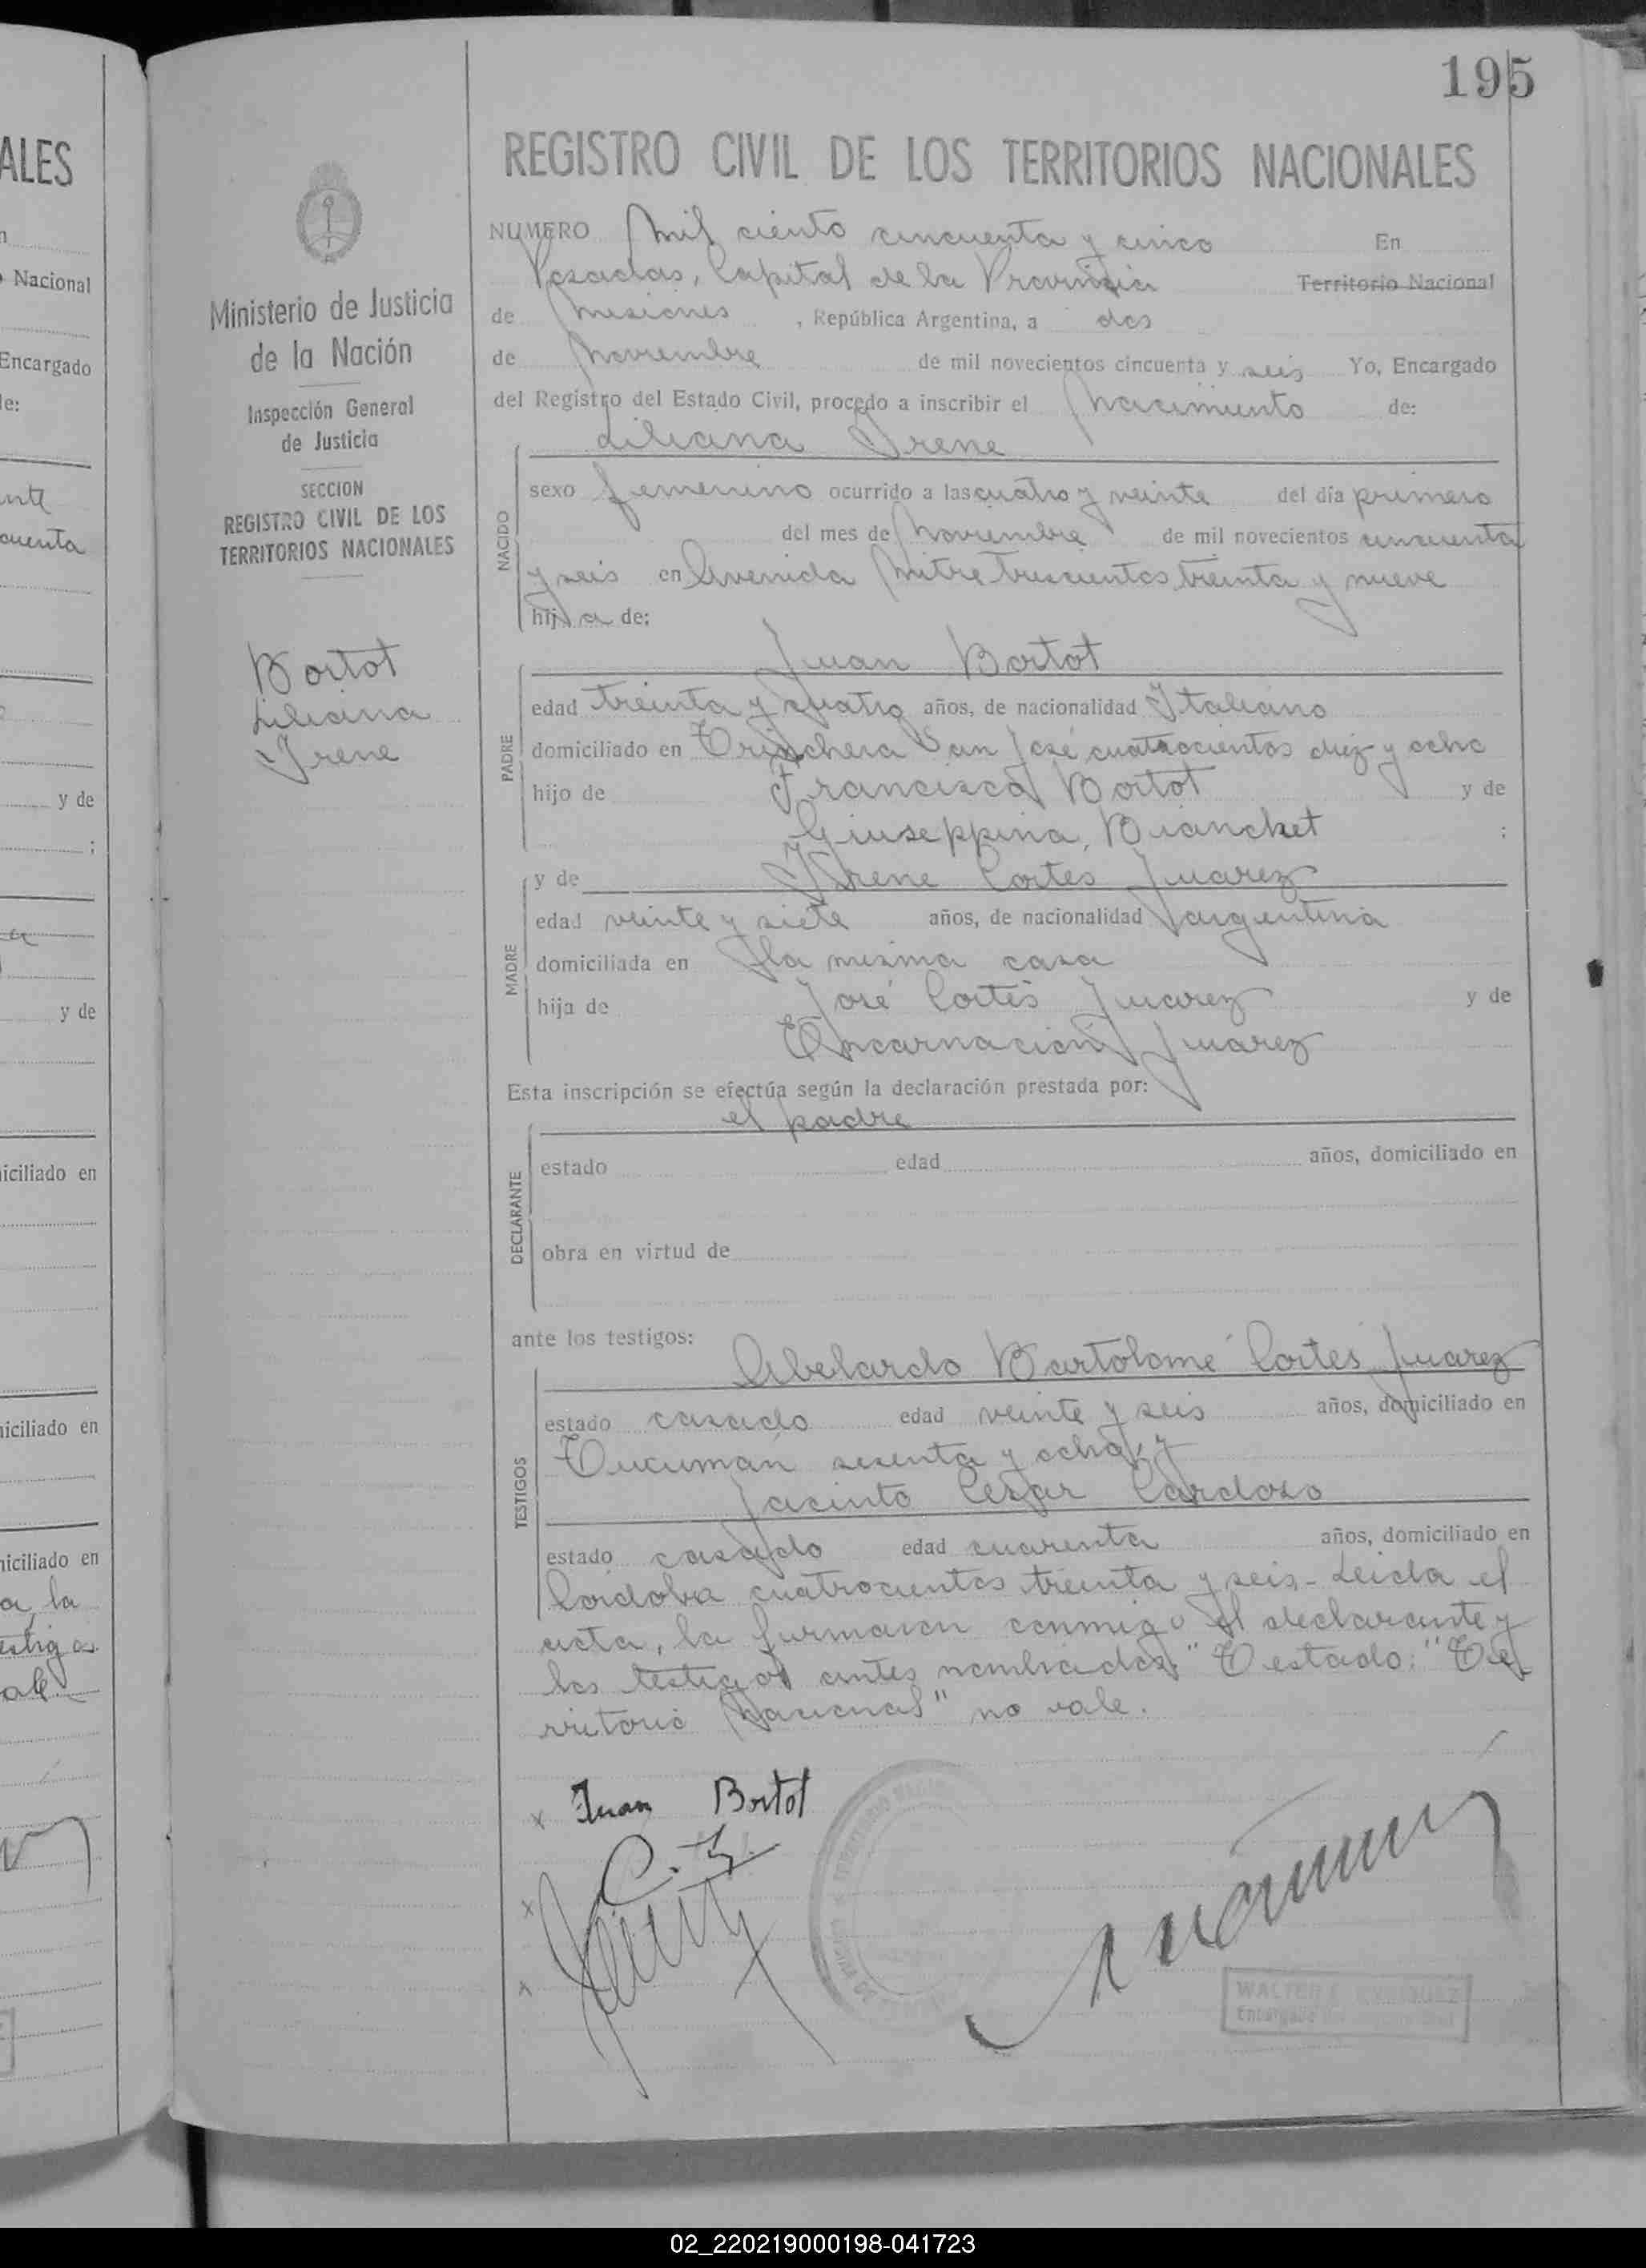 195
REGISTRO CIVIL DE LOS TERRITORIOS NACIONALES
Ministerio de Justicia
de la Nación
Inspección General
de Justicia
SECCION
REGISTRO CIVIL DE LOS
TERRITORIOS NACIONALES
Bortot
Liliana
Irene
NUMERO Mil ciento cincuenta y cinco En
Posadas, Capital de la Provincia Territorio Nacional
de Misiones, República Argentina, a dos
de Noviembre de mil novecientos cincuenta y seis Yo, Encargado
del Registro del Estado Civil, procedo a inscribir el Nacimiento de:
Liliana Irene
NACIDO
sexo femenino ocurrido a las cuatro y veinte del día primero
del mes de Noviembre de mil novecientos cincuenta
y seis en Avenida Mitre trescientos treinta y nueve
hija de:
Juan Bortot
PADRE
edad treinta y cuatro años, de nacionalidad Italiano
domiciliado en Trinchera San José cuatrocientos diez y ocho
hijo de Francisco Bortot y de
Giuseppina Bianchet ;
y de Irene Cortes Juarez
MADRE
edad veinte y siete años, de nacionalidad argentina
domiciliada en la misma casa
hija de José Cortés Juarez y de
Encarnación Juarez
Esta inscripción se efectúa según la declaración prestada por:
el padre
DECLARANTE
estado edad años, domiciliado en
obra en virtud de
ante los testigos:
Abelardo Bartolomé Cortés Juarez
TESTIGOS
estado casado edad veinte y seis años, domiciliado en
Tucumán sesenta y ocho, y
Jacinto Cesar Cardozo
estado casado edad cuarenta años, domiciliado en
Córdoba cuatrocientos treinta y seis - Leida el
acta, la firmaron conmigo el declarante y
los testigos antes nombrados." Testado: "Te
rritorio Nacional" no vale.
x Juan Bortot
x
x
WALTER
Encargado
ALES
Nacional
Encargado
le:
cuenta
y de
;
y de
iciliado en
iciliado en
iciliado en
a la
02_220219000198-041723